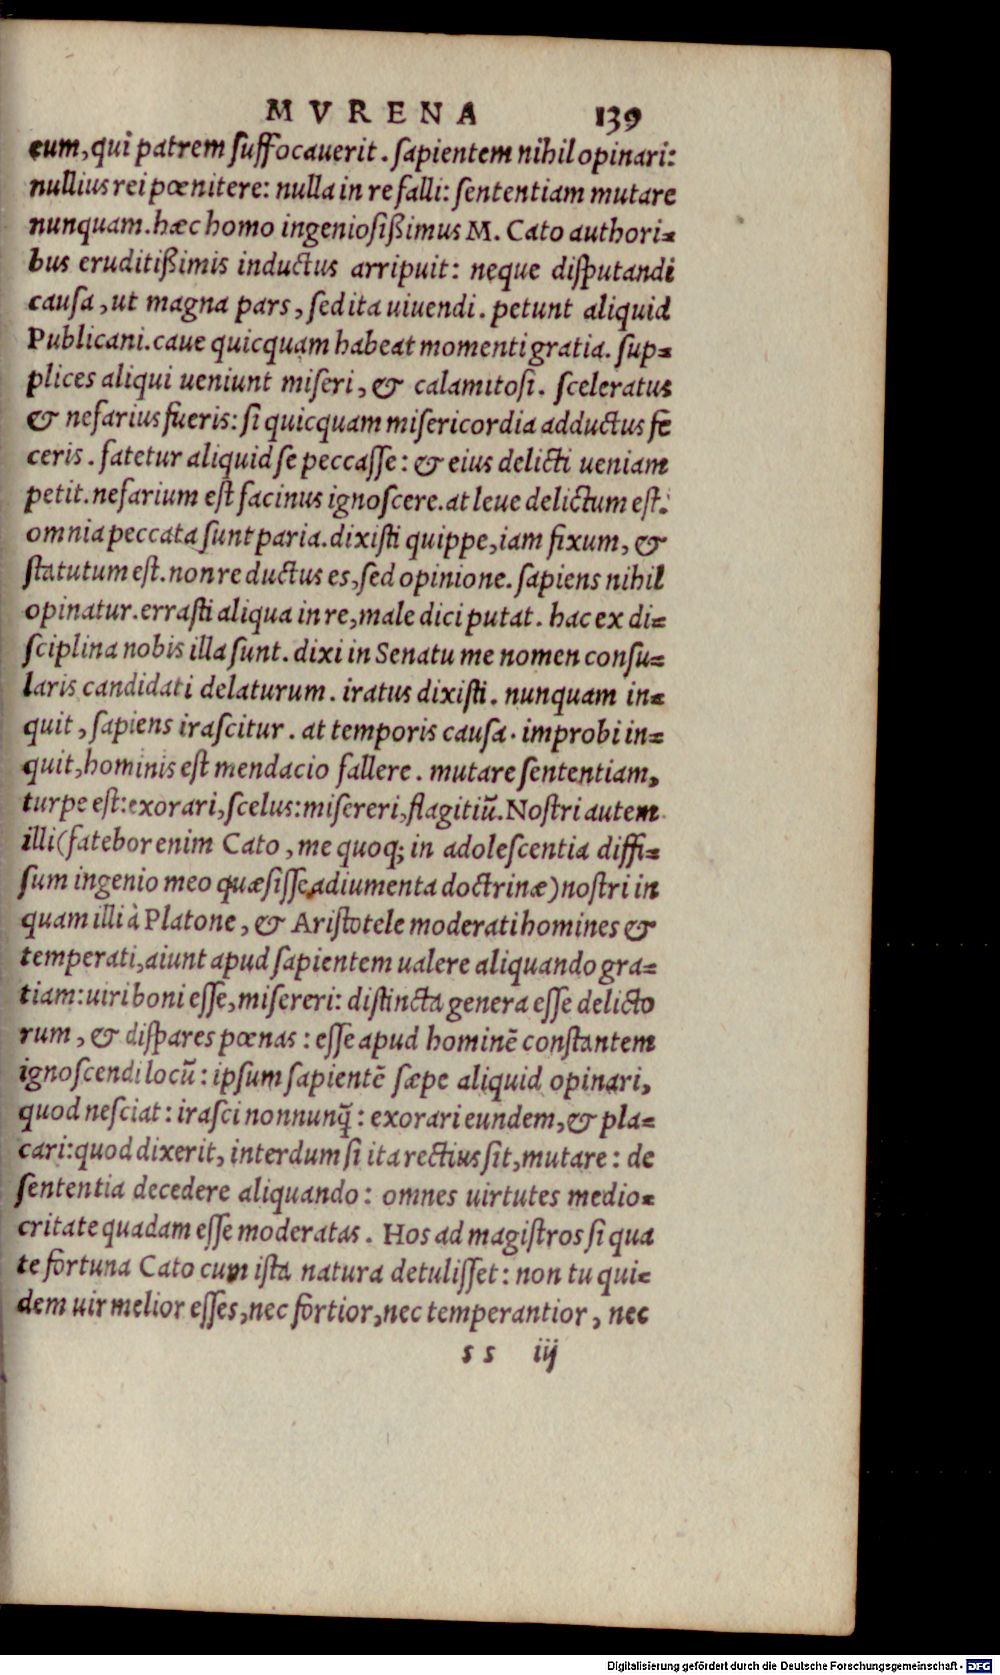 MVRENA 139
eum, qui patrem suffocauerit. sapientem nihil opinari:
nullius rei pœnitere: nulla in re falli: sententiam mutare
nunquam. hæc homo ingeniosißimus M. Cato authori-
bus eruditißimis inductus arripuit: neque disputandi
causa, ut magna pars, sed ita uiuendi. petunt aliquid
Publicani. caue quicquam habeat momenti gratia. sup-
plices aliqui ueniunt miseri, & calamitosi. sceleratus
& nefarius fueris: si quicquam misericordia adductus fe
ceris. fatetur aliquid se peccasse: & eius delicti ueniam
petit. nefarium est facinus ignoscere. at leue delictum est.
omnia peccata sunt paria. dixisti quippe, iam fixum, &
statutum est. non re ductus es, sed opinione. sapiens nihil
opinatur. errasti aliqua in re, male dici putat. hac ex di-
sciplina nobis illa sunt. dixi in Senatu me nomen consu-
laris candidati delaturum. iratus dixisti. nunquam in-
quit, sapiens irascitur. at temporis causa. improbi in-
quit, hominis est mendacio fallere. mutare sententiam,
turpe est: exorari, scelus: misereri, flagitiũ. Nostri autem
illi (fatebor enim Cato, me quoq; in adolescentia diffi-
sum ingenio meo quæsisse adiumenta doctrinæ) nostri in
quam illi à Platone, & Aristotele moderati homines &
temperati, aiunt apud sapientem ualere aliquando gra-
tiam: uiri boni esse, misereri: distincta genera esse delicto
rum, & dispares pœnas: esse apud hominẽ constantem
ignoscendi locũ: ipsum sapientẽ sæpe aliquid opinari,
quod nesciat: irasci nonnunq̃: exorari eundem, & pla-
cari: quod dixerit, interdum si ita rectius sit, mutare: de
sententia decedere aliquando: omnes uirtutes medio-
critate quadam esse moderatas. Hos ad magistros si qua
te fortuna Cato cum ista natura detulisset: non tu qui-
dem uir melior esses, nec fortior, nec temperantior, nec
ss iij
Digitalisierung gefördert durch die Deutsche Forschungsgemeinschaft - DFG